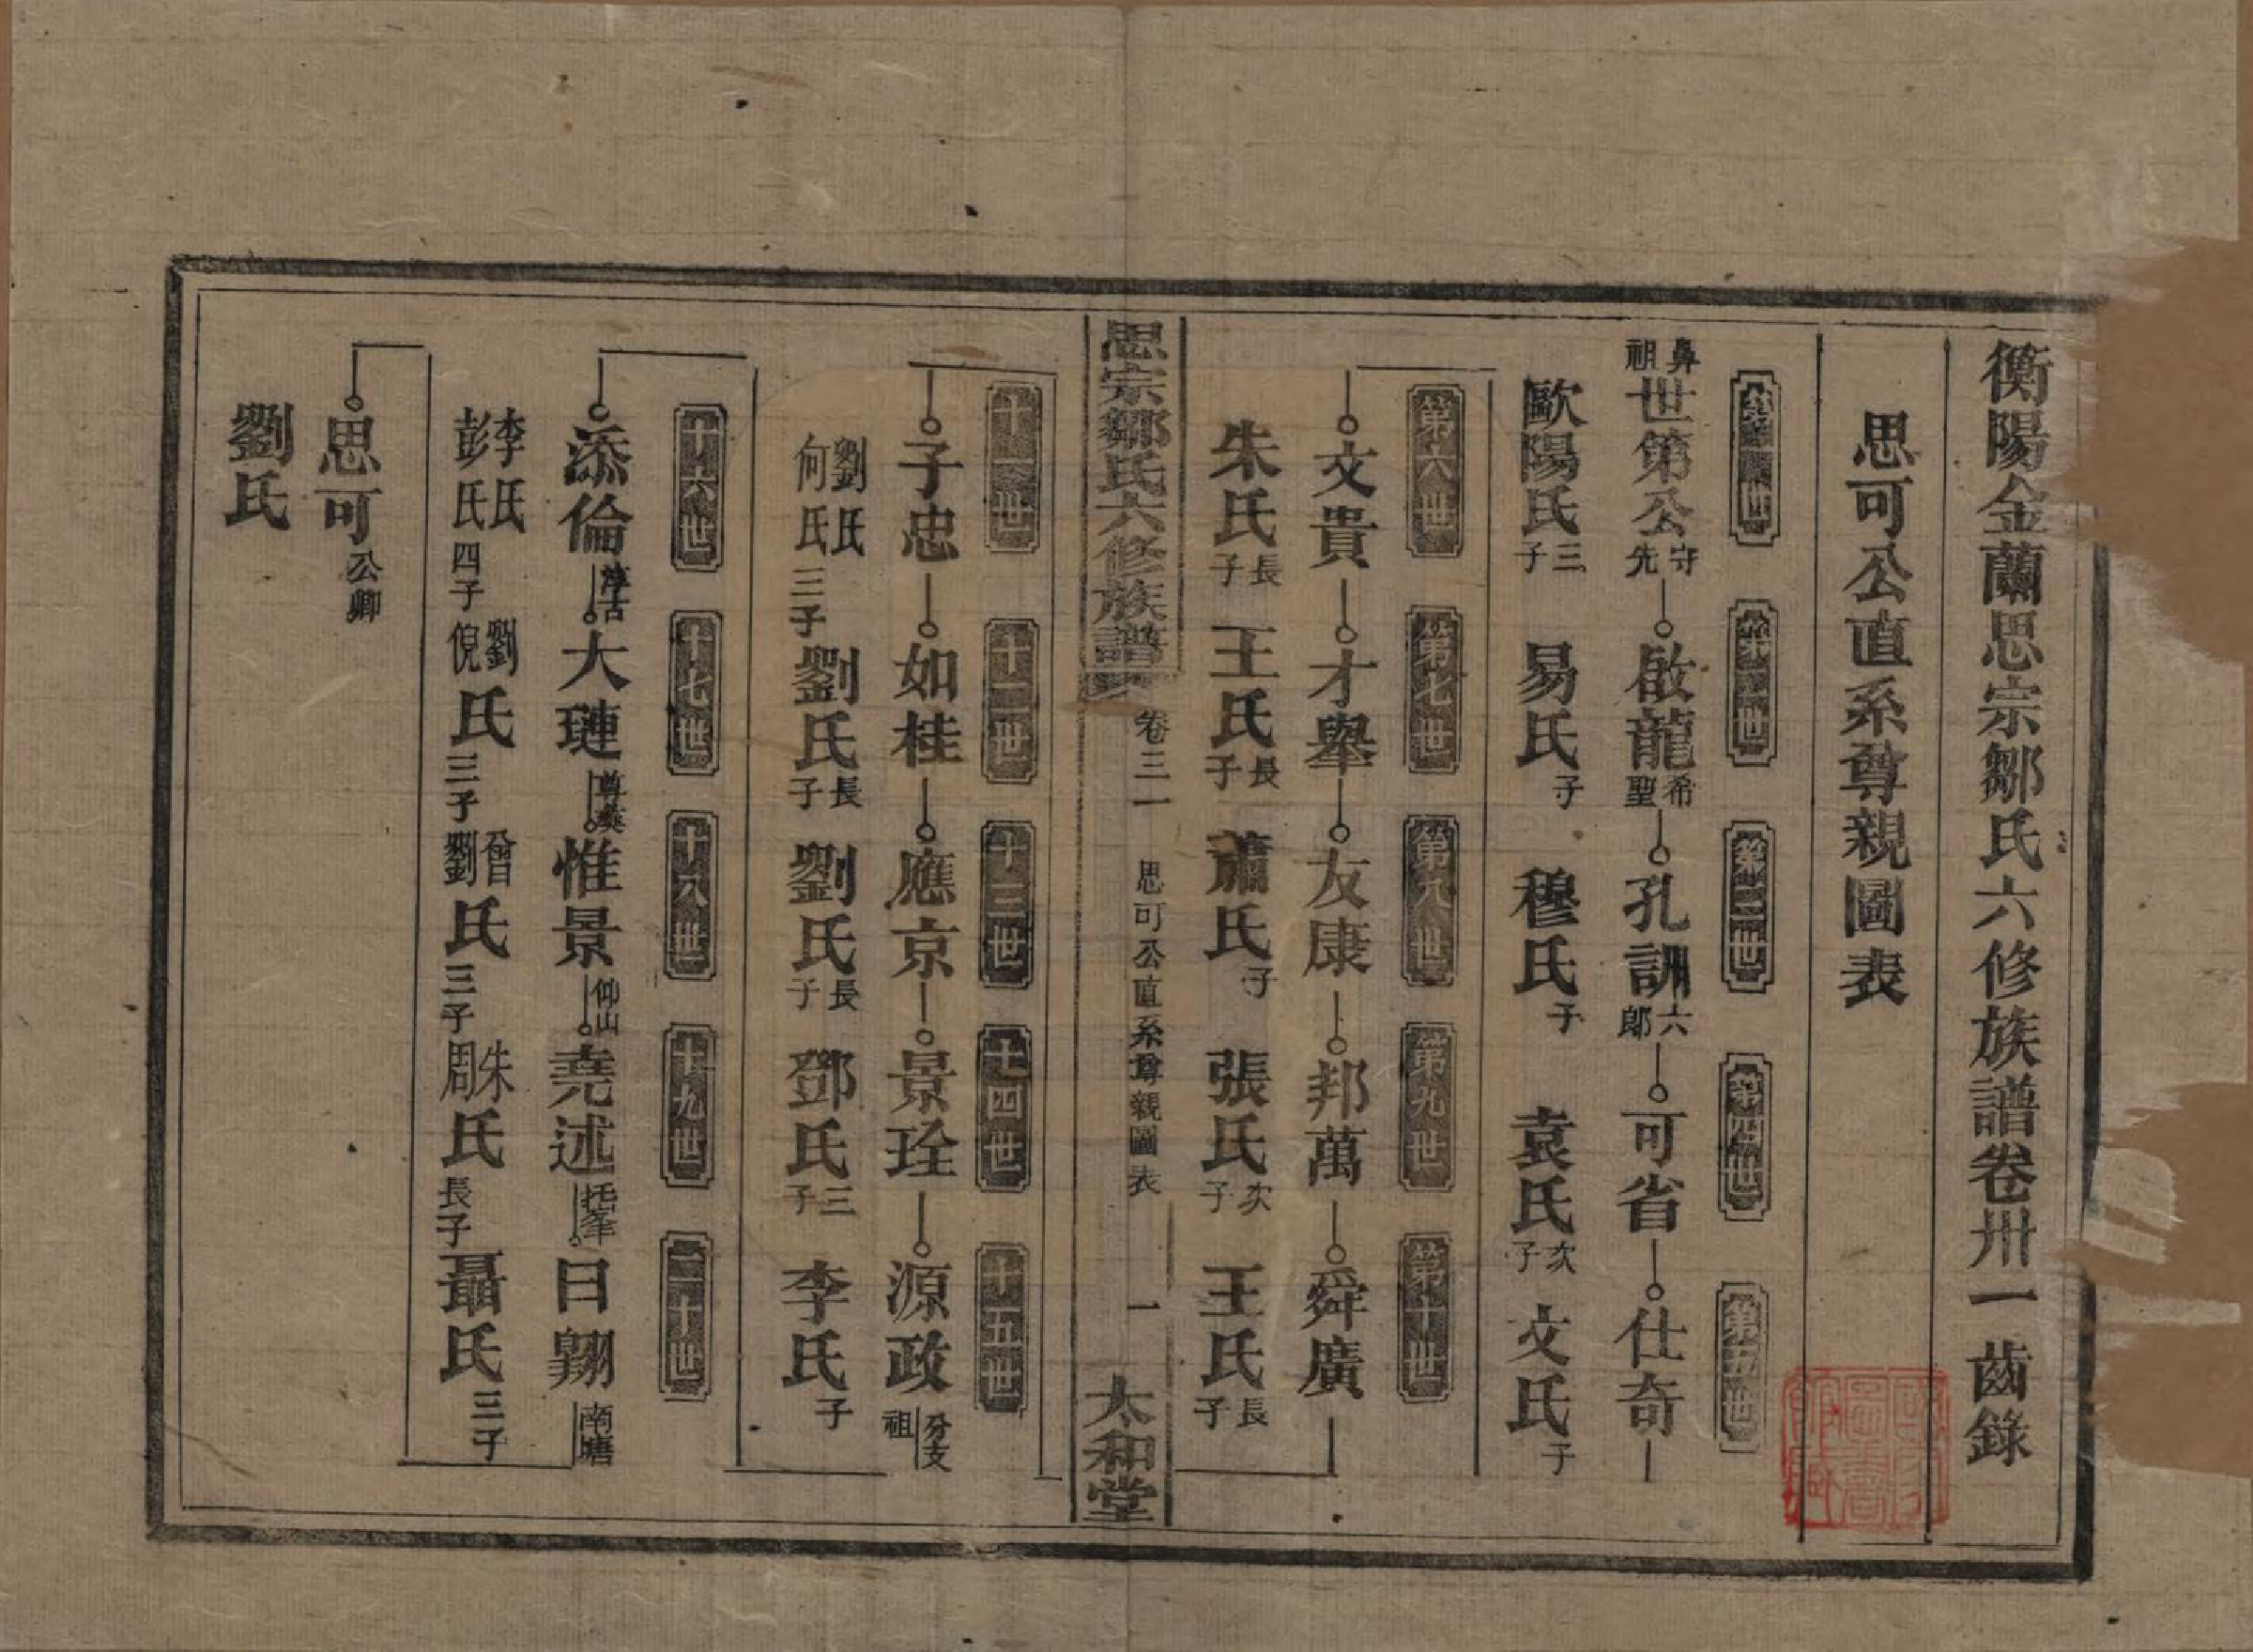 衡陽金蘭思宗鄒氏六修族譜卷卅一齒錄
思可公直系尊親圖表
第一世 第二世 第三世 第四世 第五世
鼻祖 世第公 守先 啟龍 希聖 孔訓 六郎 可省 仕奇
歐陽氏 三子 易氏 子 穆氏 子 袁氏 次子 文氏 子
第六世 第七世 第八世 第九世 第十世
文貴 才舉 友康 邦萬 舜廣
朱氏 長子 王氏 長子 蕭氏 子 張氏 次子 王氏 長子
思宗鄒氏六修族譜 卷三一 思可公直系尊親圖表 一 太和堂
十一世 十二世 十三世 十四世 十五世
子忠 如桂 應京 景珄 源政 分支祖
劉氏 何氏 三子 劉氏 長子 劉氏 長子 鄧氏 三子 李氏 子
十六世 十七世 十八世 十九世 二十世
添倫 淳古 大璉 尊彝 惟景 仰山 堯述 托峯 日翱 南塘
李氏 彭氏 四子 劉倪氏 三子 曾劉氏 三子 朱周氏 長子 聶氏 三子
思可 公卿
劉氏